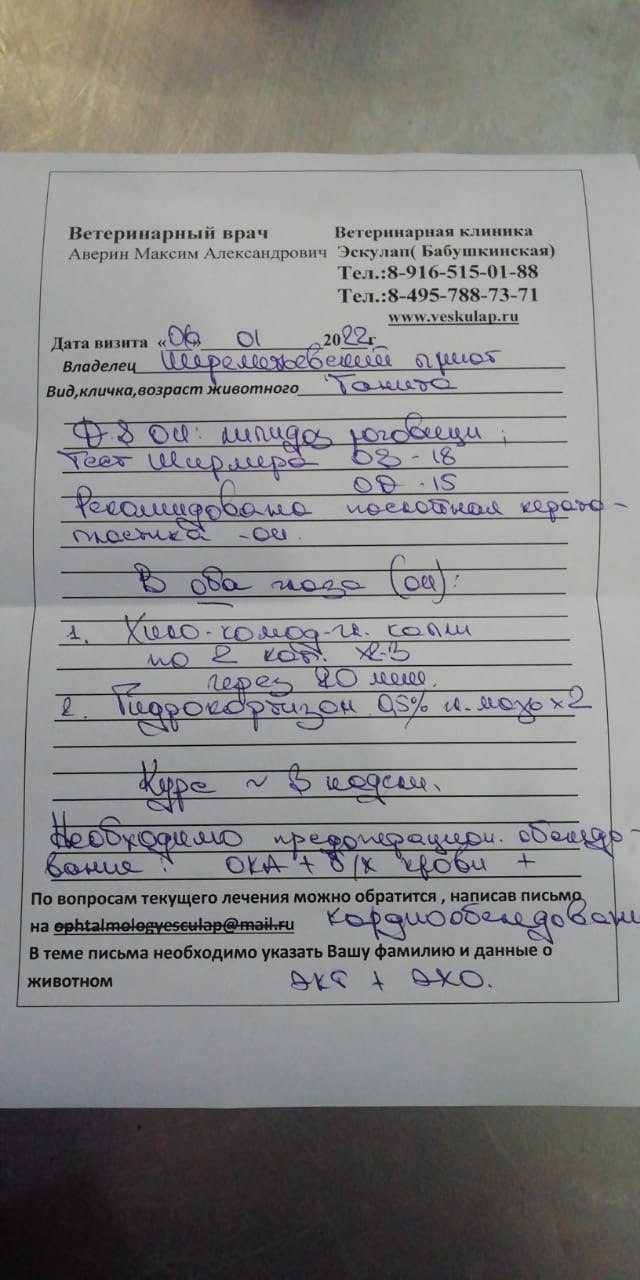 Ветеринарный врач Ветеринарная клиника
Аверин Максим Александрович Эскулап( Бабушкинская)
Тел.:8-916-515-01-88
Тел.:8-495-788-73-71
www.veskulap.ru
Дата визита «06» 01 2022г
Владелец Шереметьевский приют
Вид,кличка,возраст животного Танита
D.S ОИ: липидоз роговицы;
Тест Ширмера OS - 18
OD - 15
Рекомидована послойная керато-
пластика - ои.
В оба глаза (ои):
1. Хило-комод-гл. капли
по 2 кап. х2-3
через 20 мин.
2. Гидрокортизон 0,5% гл. мазь х2
Курс ~ 3 недели.
Необходимо предоперацион. обследо-
вание: ОКА + б/х крови +
По вопросам текущего лечения можно обратится , написав письмо
на ophtalmologyesculap@mail.ru кардиообследовани
В теме письма необходимо указать Вашу фамилию и данные о
животном ЭКГ + ЭХО.